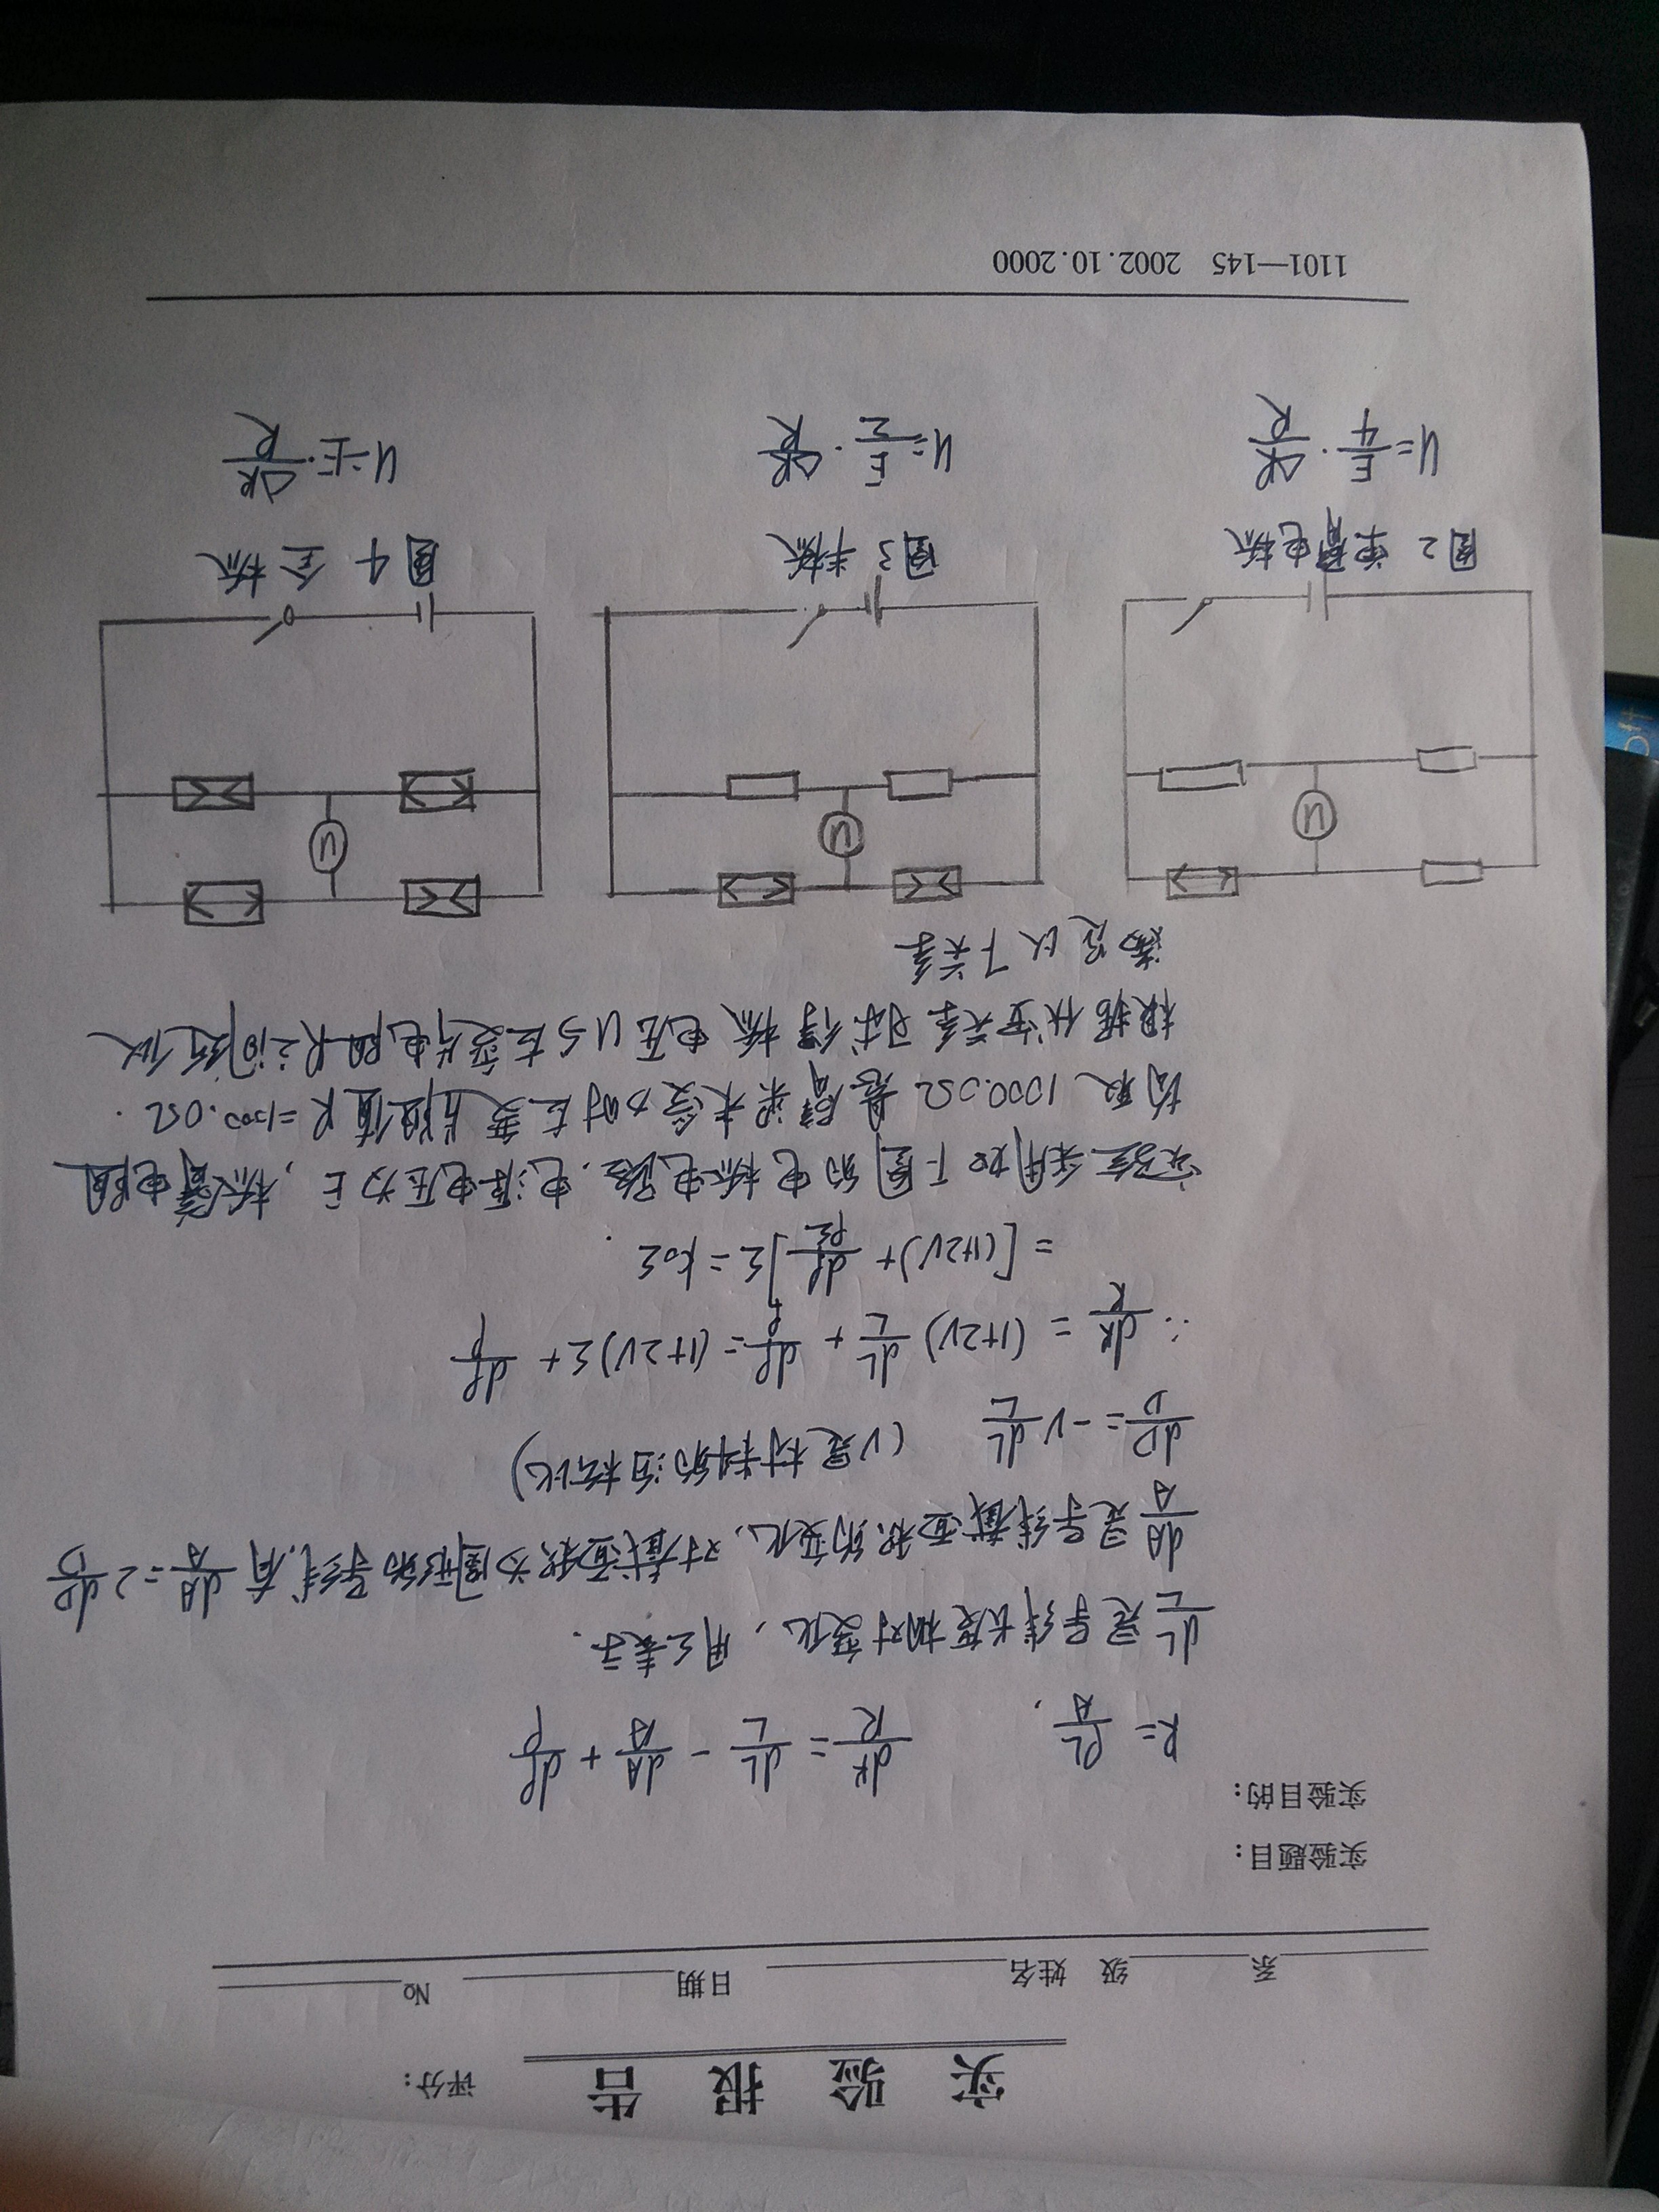 实 验 报 告 评分:
系 级 姓名 日期 №
实验题目:
实验目的:
R = ρL/A, dR/R = dL/L - dA/A + dρ/ρ
dL/L 是导线长度相对变化, 用 Σ 表示.
dA/A 是导线截面积的变化, 对截面积为圆形的导线, 有 dA/A = 2 dD/D
dD/D = -ν dL/L (ν是材料的泊松比)
∴ dR/R = (1+2ν) dL/L + dρ/ρ = (1+2ν)Σ + dρ/ρ
= [(1+2ν) + dρ/ρΣ]Σ = k₀Σ.
实验采用如下图的电桥电路, 电源电压为E, 桥臂电阻
均取 1000.0Ω 悬臂梁未受力时应变片阻值 R=1000.0Ω.
根据伏安关系可求得桥电压U与应变片电阻R之间近似
满足以下关系
U
U
U
图2 单臂电桥 图3 半桥 图4 全桥
U = E/4 · ΔR/R U = E/2 · ΔR/R U = E · ΔR/R
1101—145 2002.10.2000